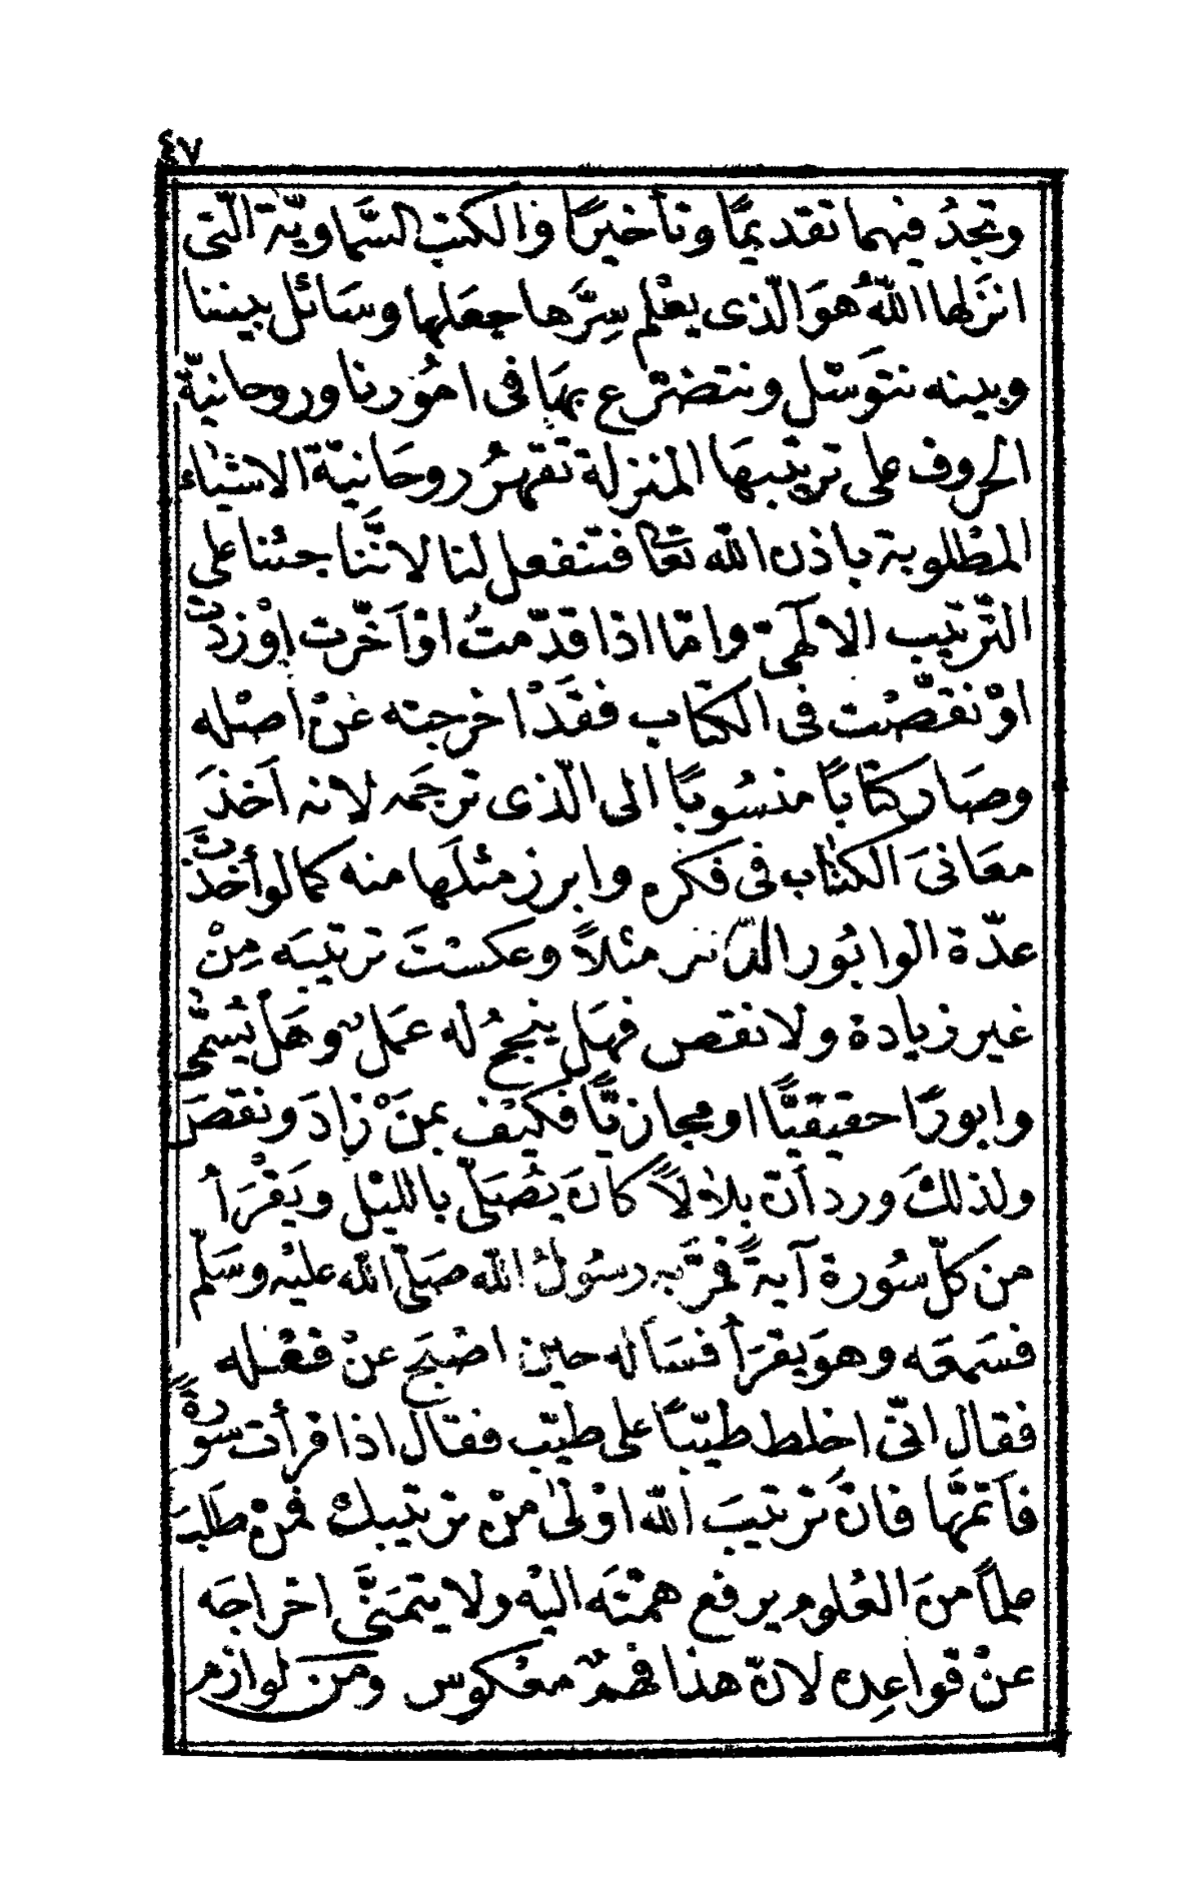 ٤٧
وتجدُ فيهما تقديمًا وتأخيرًا والكتب السَّماويّة الّتى
انزَلها اللهُ هُوَ الّذى يعْلم سِرَّها جعَلها وسَائل بيننا
وبينه نتوَسّل ونتضرّع بهَا فى امُورنا وروحانيّة
الحرُوف على ترتيبهَا المنزلة تقهَرُ روحَانيّة الاشيَاء
المطْلوبة باذن الله تعَالى فتنفعل لنا لانَّنا جئنا على
التّرتيب الالٰهىّ وامّا اذا قدّمتُ اوْ اَخّرت اوْ زدتّ
اوْ نقصّت فى الكتاب فقَدْ اخْرجته عَنْ اصْله
وصَار كتابًا منسُوبًا الى الّذى ترجَمه لانه اَخذَ
معَانىَ الكتاب فى فكره وابرز مثلَها منه كما لو أخذتَ
عدّة الوابُور مثلاً وعكسْتَ ترتيبَه مِنْ
غير زيادة ولا نقص فهَل ينجحُ له عمَلٌ وهَل يُسَمّٰى
وابورًا حقيقيًّا او مجازيًّا فكيْف بمنْ زادَ ونقصَ
ولذلكَ ورد أنّ بلالاً كانَ يُصَلّى بالليْل ويَقْرَأُ
من كلّ سُورة آيةً فمرَّ به رسُولُ الله صَلّى الله عليْه وسَلّم
فسَمعَه وهوَ يقرَأُ فسَأله حين اصْبَح عنْ فعْله
فقال انّى اخلط طيّبًا على طيّب فقال اذا قرأت سورةً
فأتمَّها فانّ ترتيبَ الله اوْلٰى منْ ترتيبك فمنْ طلَبَ
علمًا منَ العُلوم يرفع همّتَه اليْه ولا يتمنَّى اخراجَه
عنْ قواعِده لانّ هذا فهمٌ معْكوس ومن لوازم